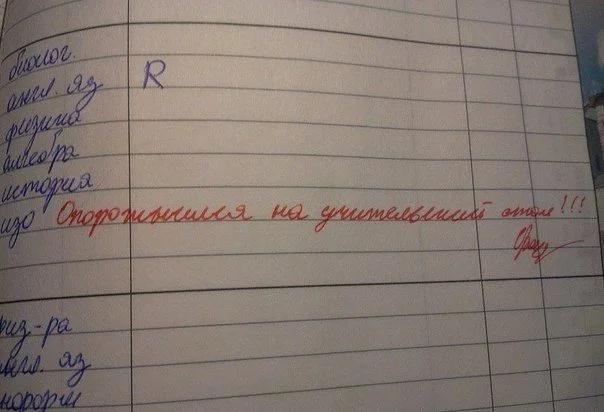 биолог.
англ. яз R
физика
алгебра
история
изо Опорожнился на учительский стол!!!
физ-ра
англ. яз
информ